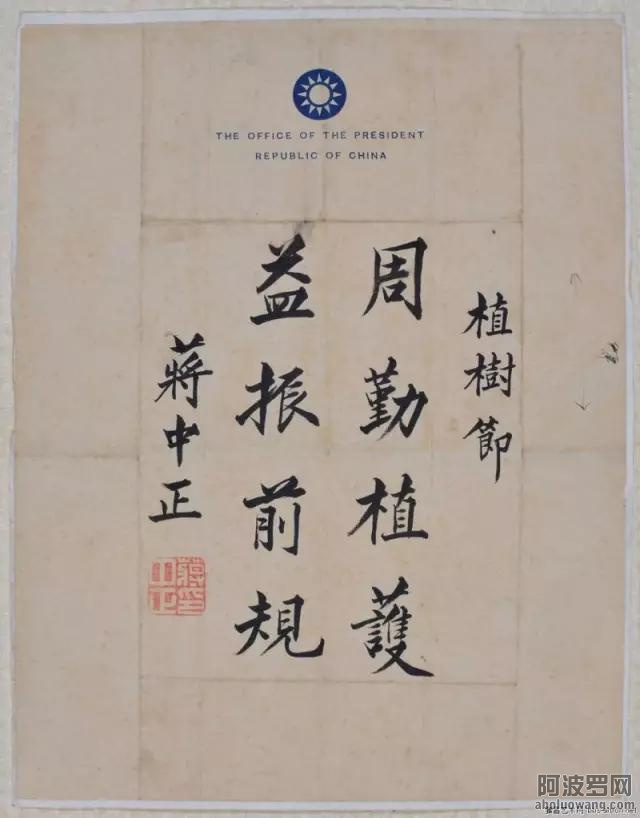 THE OFFICE OF THE PRESIDENT
REPUBLIC OF CHINA
植樹節
周勤植護
益振前規
蔣中正
阿波罗网
aboluowang.com